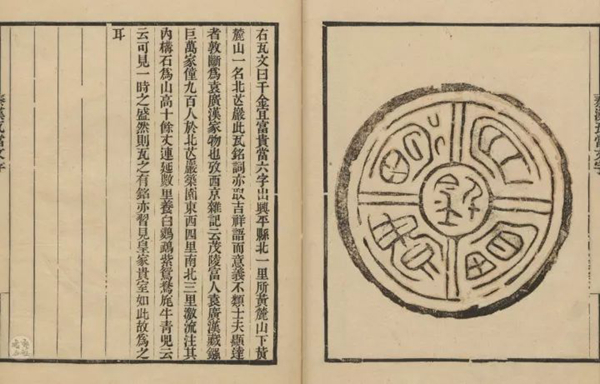 右瓦文曰千金宜富貴當六字出興平縣北一里所黃麓山下黃
麓山一名北芒巖此瓦銘詞亦取吉祥語而意義不類士夫顯達
者敦斷為袁廣漢家物也攷西京雜記云茂陵富人袁廣漢藏鏹
巨萬家僮九百人於北芒巖築園東西四里南北三里激流注其
內構石為山高十餘丈連延數里養白鸚鵡紫鴛鴦旄牛青兕云
云可見一時之盛然則瓦之有銘亦習見皇家貴室如此故為之
耳